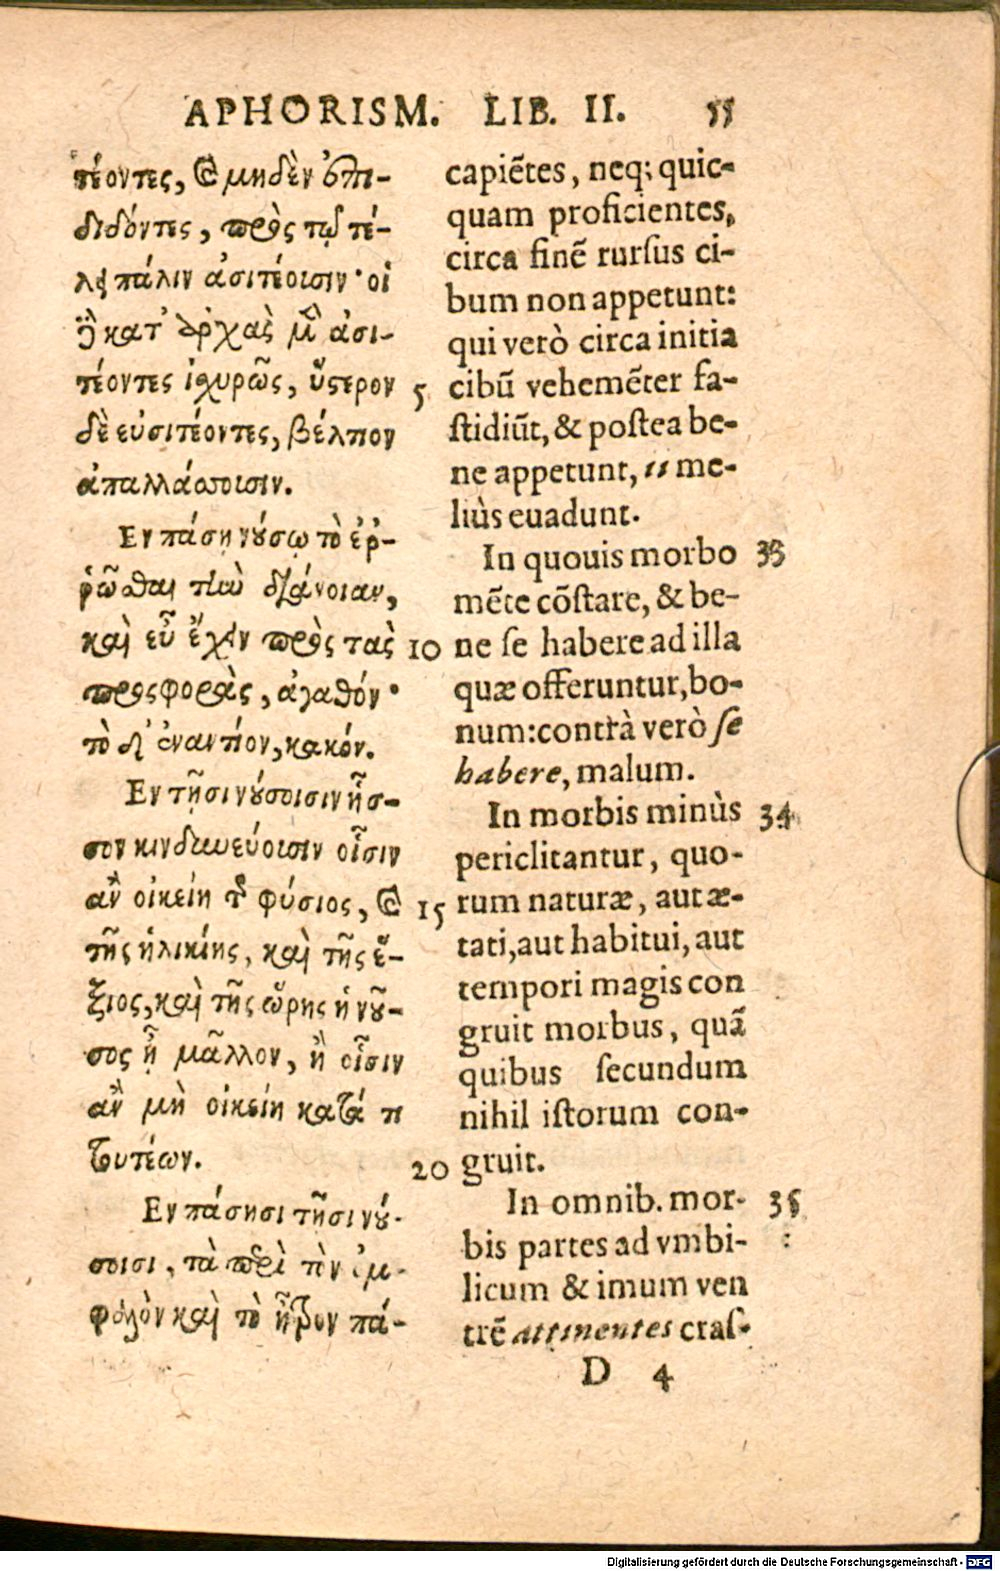 APHORISM. LIB. II. 55
τέοντες, καὶ μηδὲν ἐπι-
διδόντες, πρὸς τῷ τέ-
λει πάλιν ἀσιτέουσιν· οἱ
δὲ κατ' ἀρχὰς μὲν ἀσι-
τέοντες ἰσχυρῶς, ὕστερον
δὲ εὐσιτέοντες, βέλτιον
ἀπαλλάσσουσιν.
Εν πάσῃ νούσῳ τὸ ἐῤ-
ῥῶσθαι τὴν διάνοιαν,
καὶ εὖ ἔχειν πρὸς τὰς
προσφορὰς, ἀγαθόν·
τὸ δ' ἐναντίον, κακόν.
Εν τῇσι νούσοισιν ἧσ-
σον κινδυνεύουσιν οἷσιν
ἂν οἰκείη τῆς φύσιος, καὶ
τῆς ἡλικίης, καὶ τῆς ἕ-
ξιος, καὶ τῆς ὥρης ἡ νοῦ-
σος ᾖ μᾶλλον, ἢ οἷσιν
ἂν μὴ οἰκείη κατά τι
τουτέων.
Εν πάσῃσι τῇσι νού-
σοισι, τὰ περὶ τὸν ὀμ-
φαλὸν καὶ τὸ ἦτρον πά-
5
10
15
20
capiẽtes, neq; quic-
quam proficientes,
circa finẽ rurſus ci-
bum non appetunt:
qui verò circa initia
cibũ vehemẽter fa-
ſtidiũt, & poſtea be-
ne appetunt, ii me-
liùs euadunt.
In quouis morbo 33
mẽte cõſtare, & be-
ne ſe habere ad illa
quæ offeruntur, bo-
num: contrà verò ſe
habere, malum.
In morbis minùs 34
periclitantur, quo-
rum naturæ, aut æ-
tati, aut habitui, aut
tempori magis con
gruit morbus, quã
quibus ſecundum
nihil iſtorum con-
gruit.
In omnib. mor- 35
bis partes ad vmbi-
licum & imum ven
trẽ attinentes craſ-
D 4
Digitalisierung gefördert durch die Deutsche Forschungsgemeinschaft - DFG